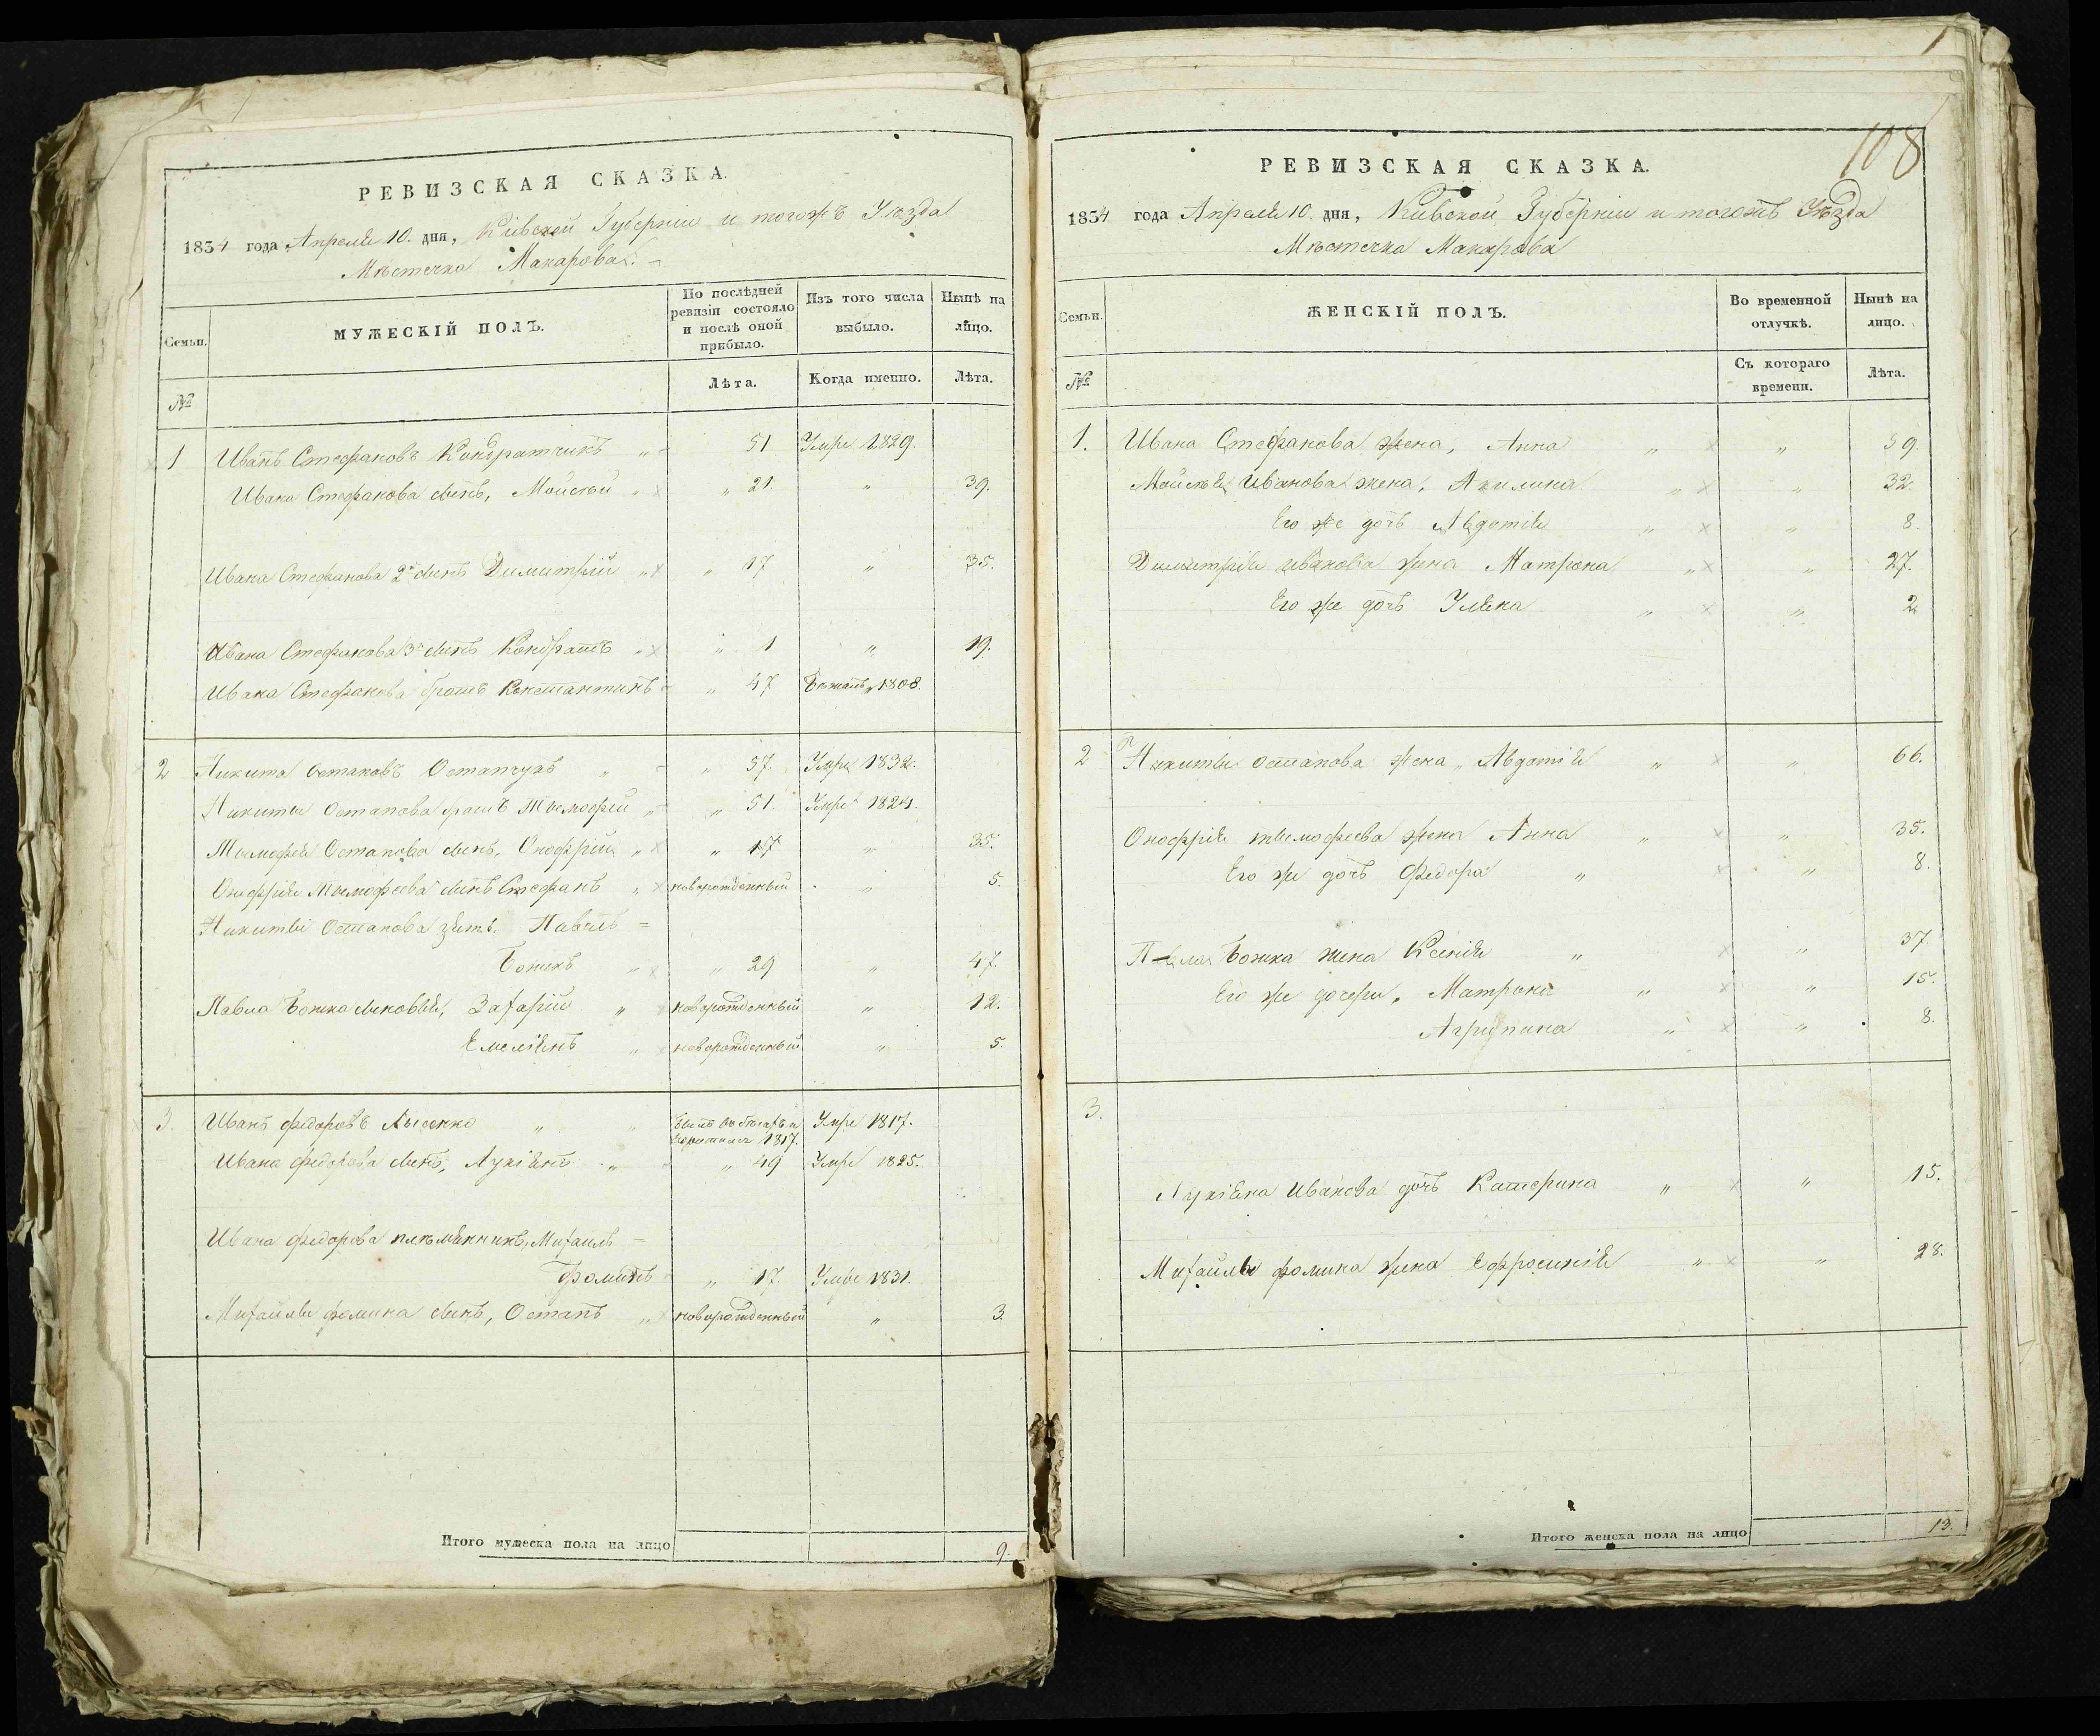 РЕВИЗСКАЯ СКАЗКА.
1834 года Апреля 10. дня, Кіевской Губерніи и тогожъ Уѣзда
Мѣстечка Макарова.
Семьи.
МУЖЕСКІЙ ПОЛЪ.
По послѣдней ревизіи состояло и послѣ оной прибыло.
Изъ того числа выбыло.
Нынѣ на лицо.
№
Лѣта.
Когда именно.
Лѣта.
1 Иванъ Стефановъ Кондратчикъ „ 51 Умре 1829.
Ивана Стефанова сынъ, Мойсей „ „ 21. „ 39.
Ивана Стефанова 2й сынъ Димитрій „ „ 17 „ 35.
Ивана Стефанова 3й сынъ Кондратъ „ „ 1 „ 19.
Ивана Стефанова братъ Константинъ „ 47 Бежалъ 1808.
2 Никита Остаповъ Остапчукъ „ „ 57. Умре 1832.
Никиты Остапова братъ Тымофей „ „ 51. Умре 1824.
Тымофея Остапова сынъ, Онофрій „ „ 17 „ 35.
Онофрія Тымофеева сынъ Стефанъ „ новорожденный „ 5.
Никиты Остапова зять. Павелъ =
Божкъ „ „ 29 „ 47.
Павла Божка сыновья, Захарій „ новорожденный „ 12.
Емеліянъ „ новорожденный „ 5.
3. Иванъ Федоровъ Лысенко „ „ Былъ въ бегахъ и 1817. Умре 1817.
Ивана Федорова сынъ, Лукіянъ „ „ 49 Умре 1825.
Ивана Федорова племянникъ, Михаилъ =
Фоминъ „ 17. Умре 1831.
Михайлы Фомина сынъ, Остапъ „ новорожденный „ 3.
Итого мужеска пола на лицо 9.
1
108
РЕВИЗСКАЯ СКАЗКА.
1834 года Апреля 10. дня, Кіевской Губерніи и тогожъ Уѣзда
Мѣстечка Макарова
Семьи.
ЖЕНСКІЙ ПОЛЪ.
Во временной отлучкѣ.
Нынѣ на лицо.
№
Съ котораго времени.
Лѣта.
1. Ивана Стефанова жена, Анна „ „ 59.
Мойсея Иванова жена, Акилина „ „ 32.
Его же дочь Авдотія „ „ 8.
Димитрія Иванова жена Матрона „ „ 27.
Его же дочь Уляна „ „ 2
2 Никиты Остапова жена, Авдотія „ „ 66.
Онофрія Тымофеева жена Анна „ „ 35.
Его же дочь Федора „ „ 8.
Павла Божка жена Ксенія „ „ 37.
Его же дочери, Матрона „ „ 15.
Агрипина „ „ 8.
3.
Лукіяна Иванова дочь Катерина „ „ 15.
Михайлы Фомина жена Ефросинія „ „ 28.
Итого женска пола на лицо 13.